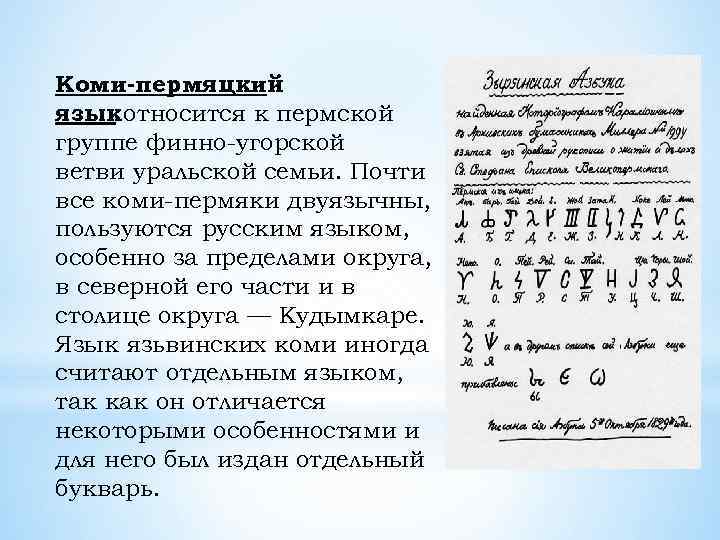 Коми-пермяцкий
язык относится к пермской
группе финно-угорской
ветви уральской семьи. Почти
все коми-пермяки двуязычны,
пользуются русским языком,
особенно за пределами округа,
в северной его части и в
столице округа — Кудымкаре.
Язык язьвинских коми иногда
считают отдельным языком,
так как он отличается
некоторыми особенностями и
для него был издан отдельный
букварь.
Зырянская Азбука
найденная Исторiографомъ Карамзинымъ
въ Архивскихъ бумагахъ Миллера №
взятая изъ древней рукописи о житiи и делахъ
Св. Стефана Епископа Великопермскаго.
А. Б. Г. Д. Е. Ж. З. I. К. Л. М.
Н. О. П. Р. С. Т. У. Ч. Ш.
Ю. Я.
а въ другомъ списке сей Азбуки еще
прибавлены
Писана сiя Азбука 5го Октября 1829го года.